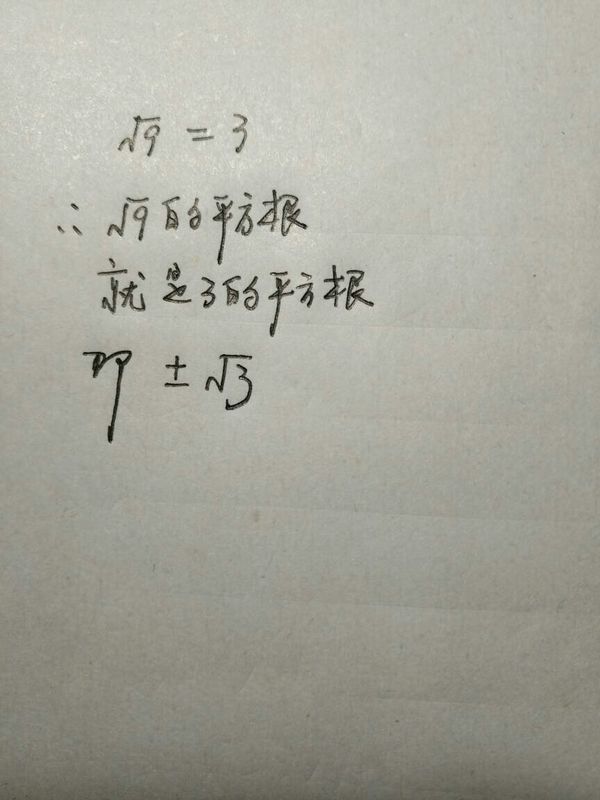 √9 = 3
∴ √9的平方根
就是3的平方根
即 ±√3